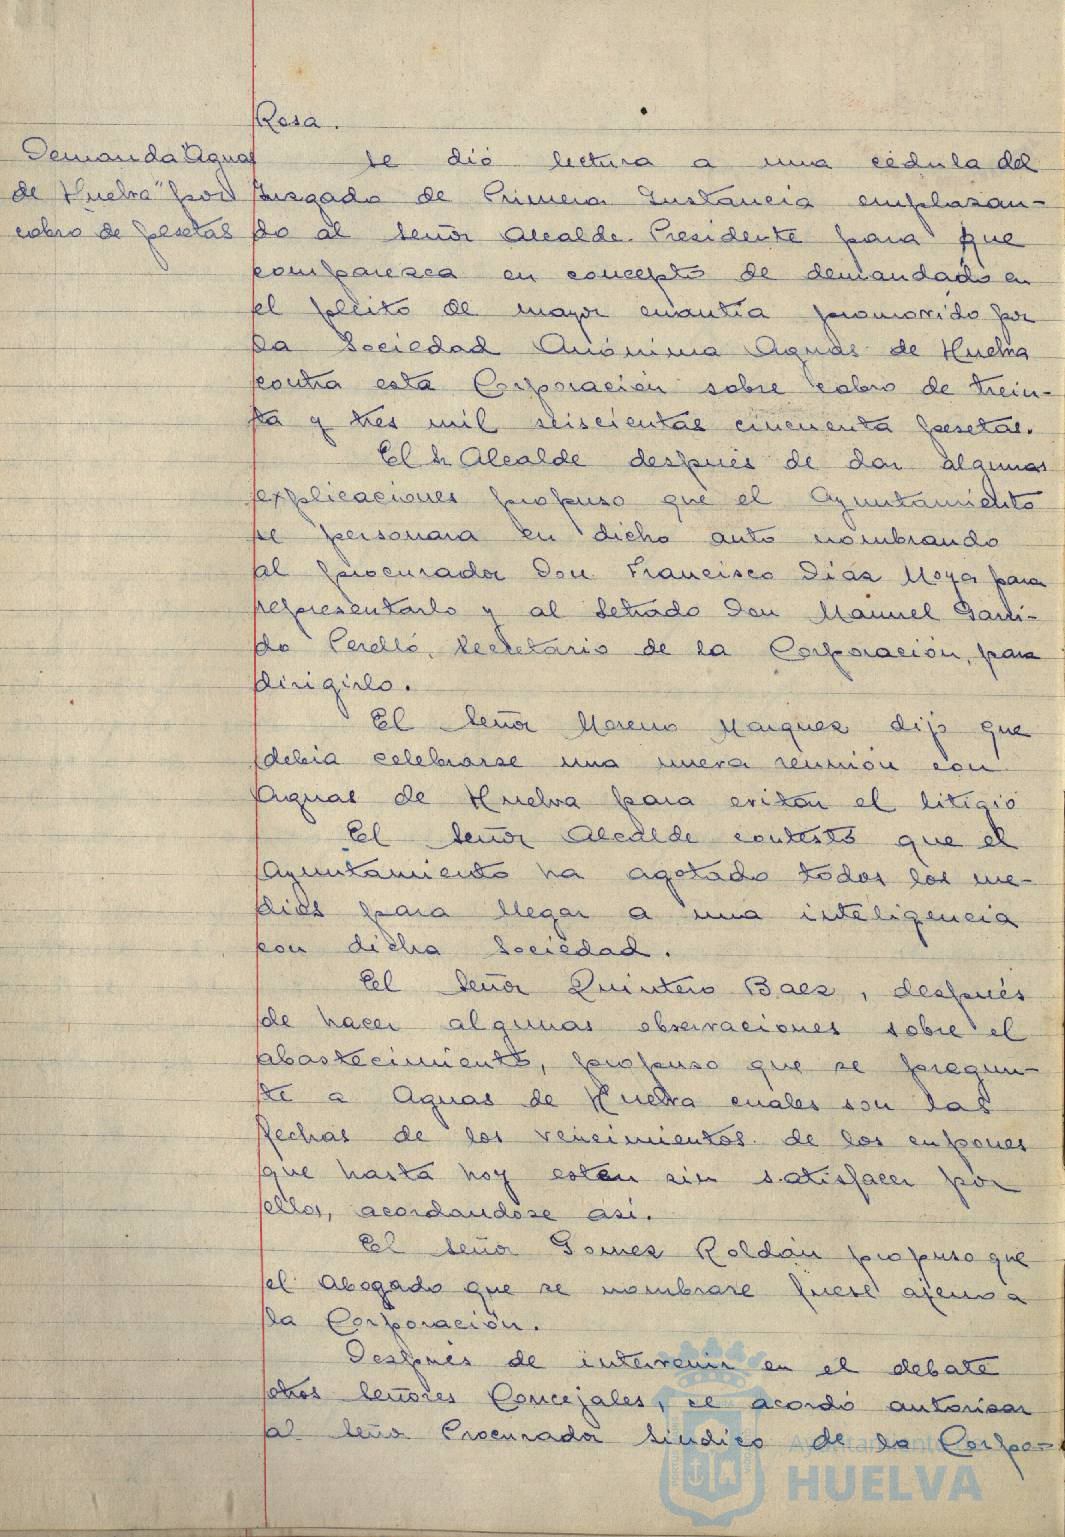 Rosa.
Demanda "Aguas
de Huelva" por
cobro de pesetas
Se dió lectura a una cédula del
Juzgado de Primera Instancia emplazan-
do al Señor Alcalde Presidente para que
comparezca en concepto de demandado en
el pleito de mayor cuantía promovido por
la Sociedad Anónima Aguas de Huelva
contra esta Corporación sobre cobro de trein-
ta y tres mil seiscientas cincuenta pesetas.
El Sr Alcalde después de dar algunas
explicaciones propuso que el Ayuntamiento
se personara en dicho auto nombrando
al procurador Don Francisco Díaz Moya para
representarlo y al Letrado Don Manuel Garri-
do Perelló, Secretario de la Corporación, para
dirigirlo.
El Señor Moreno Marquez dijo que
debia celebrarse una nueva reunión con
Aguas de Huelva para evitar el litigio
El Señor Alcalde contestó que el
Ayuntamiento ha agotado todos los me-
dios para llegar a una inteligencia
con dicha Sociedad.
El Señor Quintero Baez, después
de hacer algunas observaciones sobre el
abastecimiento, propuso que se pregun-
te a Aguas de Huelva cuales son las
fechas de los vencimientos de los cupones
que hasta hoy esten sin satisfacer por
ellos, acordandose así.
El Señor Gomez Roldán propuso que
el abogado que se nombrase fuese ajeno a
la Corporación.
Después de intervenir en el debate
otros Señores Concejales, se acordó autorizar
al Señor Procurador Sindico de la Corpo-
Ayuntamiento
HUELVA